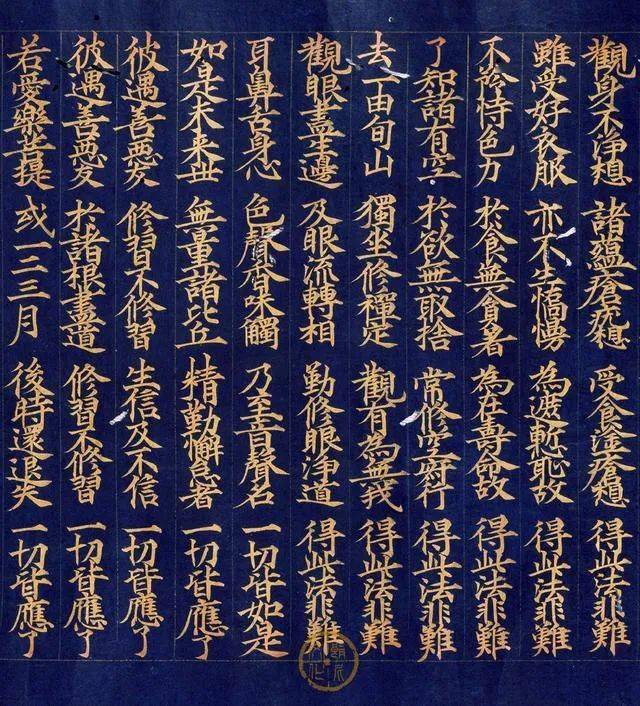 觀身不淨想 諸蘊瘡疣想 受食塗瘡想 得此法非難
雖受好衣服 亦不生憍慢 為遮慙恥故 得此法非難
不矜恃色力 於食無貪著 為在壽命故 得此法非難
了知諸有空 於欲無取捨 常修空寂行 得此法非難
去一由旬山 獨坐修禪定 觀有為無我 得此法非難
觀眼盡生邊 及眼流轉相 勤修眼淨道 得此法非難
耳鼻舌身心 色聲香味觸 乃至音聲名 一切皆如是
如是未来世 無量諸比丘 精勤懈怠者 一切皆應了
彼遇善惡友 修習不修習 生信及不信 一切皆應了
彼遇善惡友 於諸根盡道 修習不修習 一切皆應了
若愛樂菩提 或一二三月 後時還退失 一切皆應了